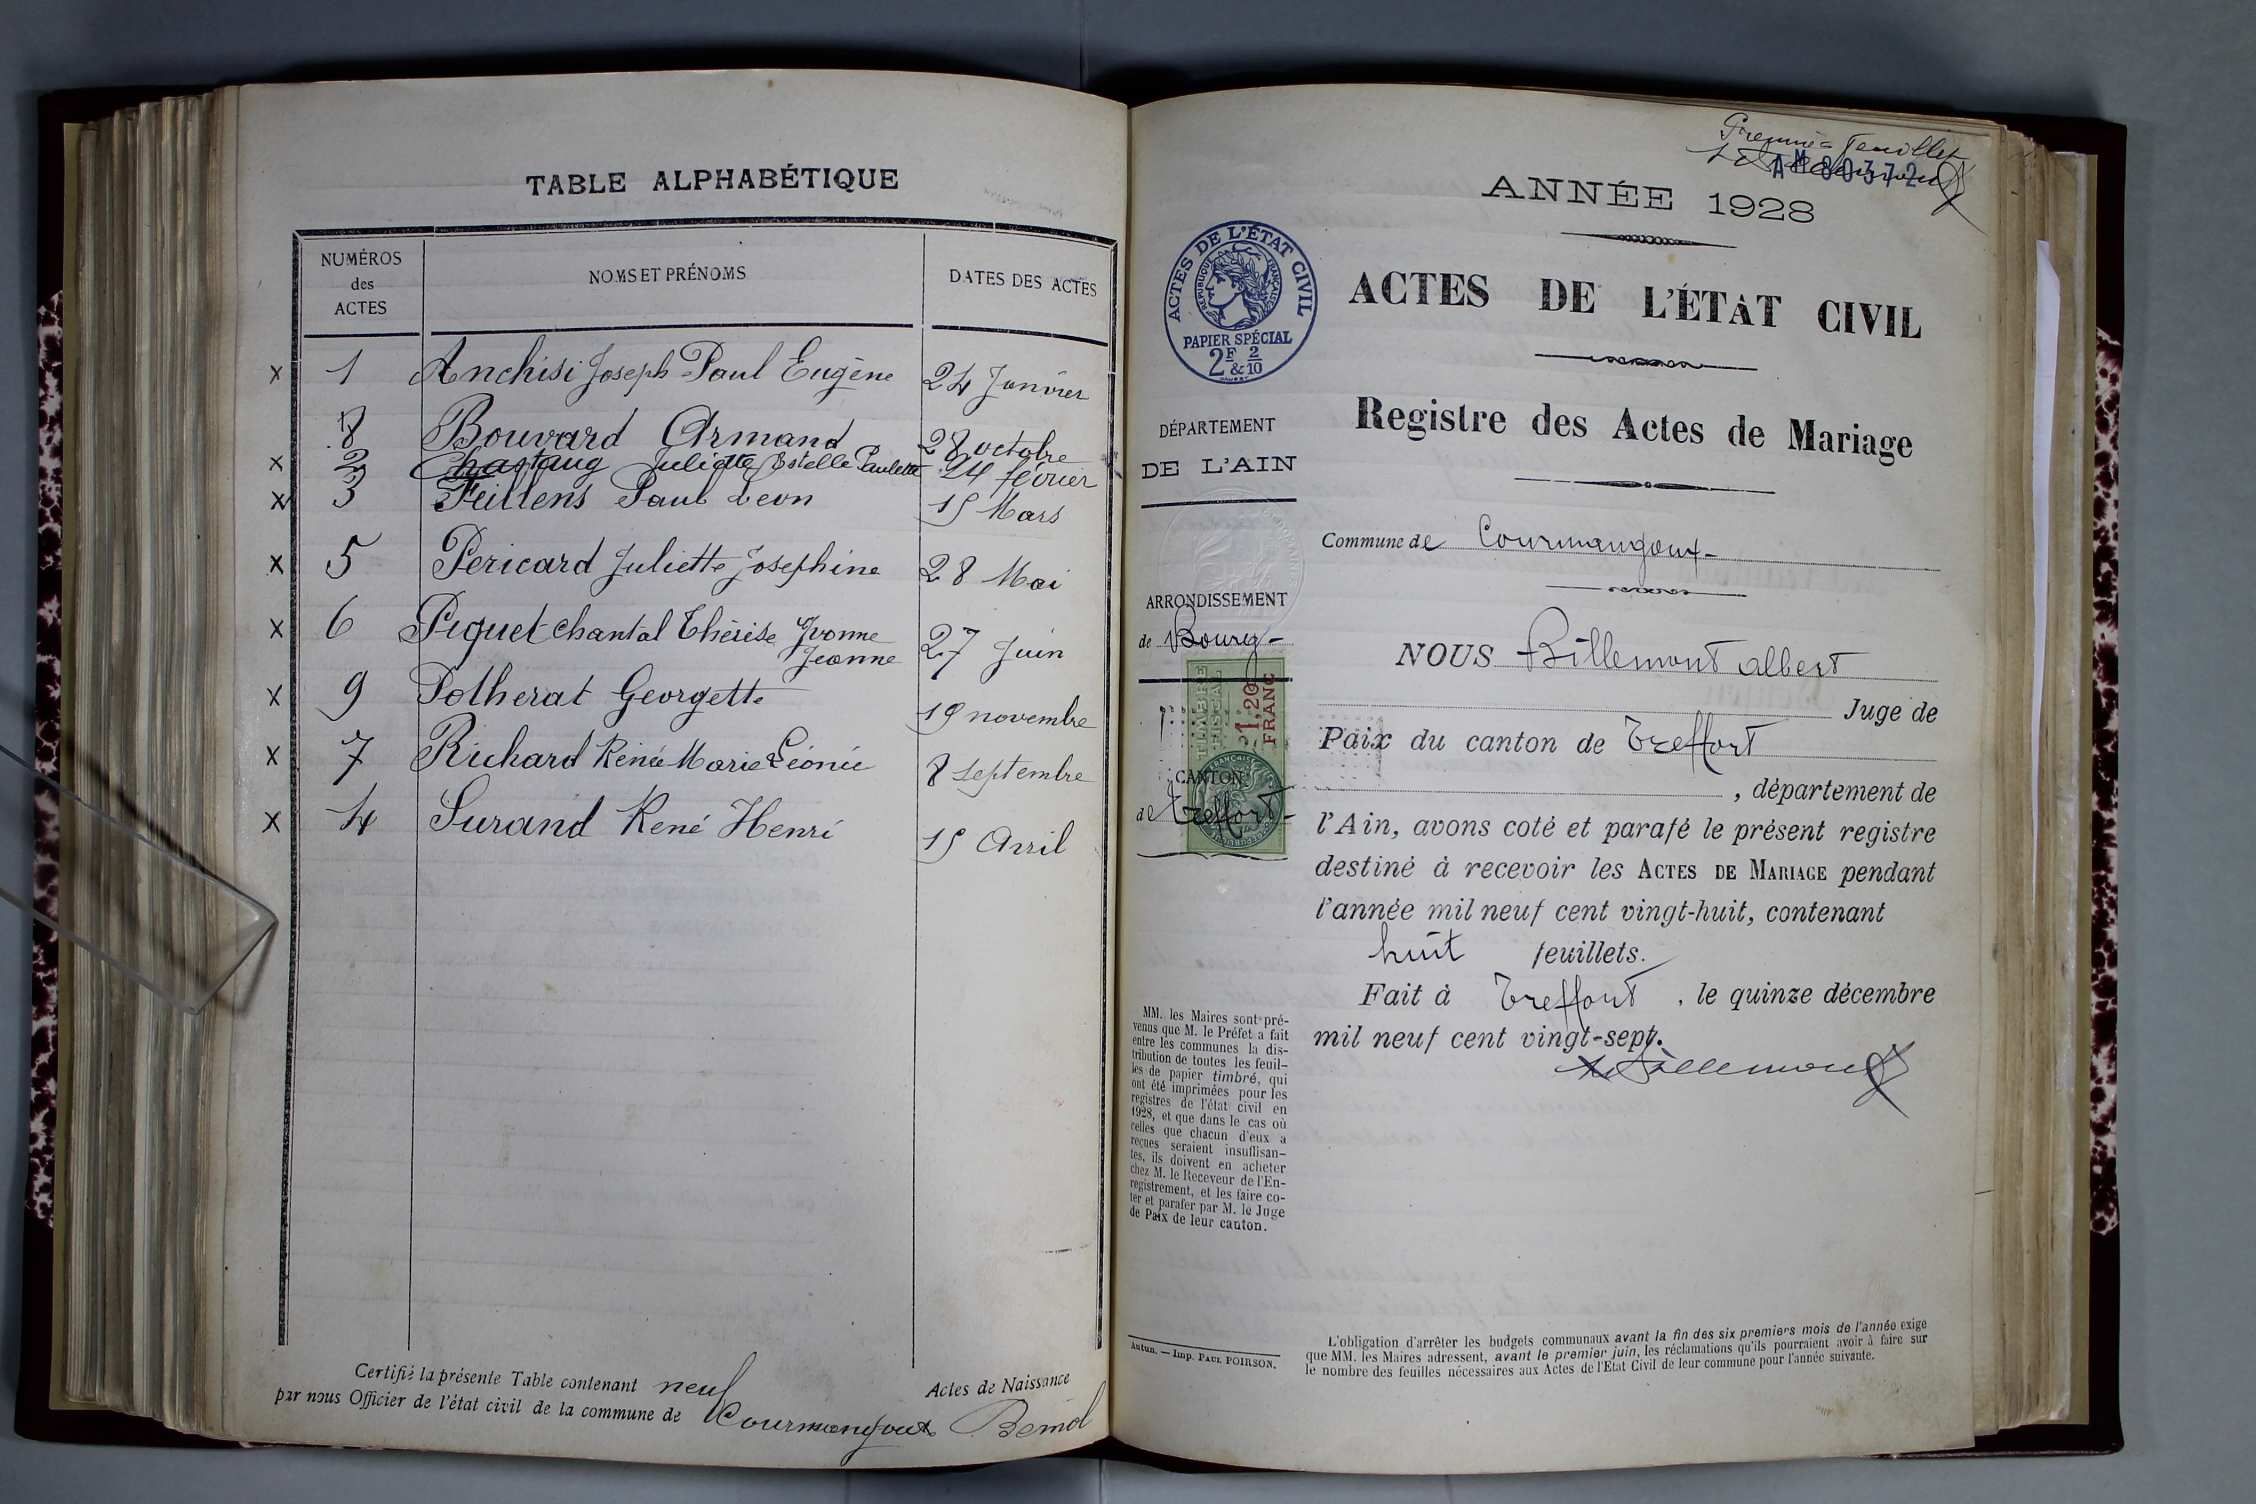 TABLE ALPHABÉTIQUE
NUMÉROS des ACTES
NOMS ET PRÉNOMS
DATES DES ACTES
x 1 Anchisi Joseph Paul Eugène 24 Janvier
8 Bouvard Armand 28 octobre
x 2 Chastang Juliette Estelle Paulette 24 février
x 3 Feillens Paul Leon 15 Mars
x 5 Pericard Juliette Josephine 28 Mai
x 6 Piquet Chantal Thérèse Yvonne
Jeanne 27 Juin
x 9 Potherat Georgette 19 novembre
x 7 Richard Renée Marie Léonie 8 septembre
x 4 Surand René Henri 15 Avril
Certifié la présente Table contenant neuf Actes de Naissance
par nous Officier de l'état civil de la commune de Courmangoux
Premier feuillet
AM 80372
ANNÉE 1928
ACTES DE L'ÉTAT CIVIL
RÉPUBLIQUE FRANÇAISE
PAPIER SPÉCIAL
2F & 2/10
ACTES DE L'ÉTAT CIVIL
Registre des Actes de Mariage
DÉPARTEMENT
DE L'AIN
Commune de Courmangoux
ARRONDISSEMENT
de Bourg
TIMBRE
FISCAL
1,20
FRANC
CANTON
de Treffort
NOUS Billemont Albert
Juge de
Paix du canton de Treffort
, département de
l'Ain, avons coté et parafé le présent registre
destiné à recevoir les ACTES DE MARIAGE pendant
l'année mil neuf cent vingt-huit, contenant
huit feuillets.
Fait à Treffort, le quinze décembre
mil neuf cent vingt-sept.
Billemont
MM. les Maires sont pré-
venus que M. le Préfet a fait
entre les communes la dis-
tribution de toutes les feuil-
les de papier timbré, qui
ont été imprimées pour les
registres de l'état civil en
1928, et que dans le cas où
celles que chacun d'eux a
reçues seraient insuffisan-
tes, ils doivent en acheter
chez M. le Receveur de l'En-
registrement, et les faire co-
ter et parafer par M. le Juge
de Paix de leur canton.
Autun. — Imp. PAUL POIRSON.
L'obligation d'arrêter les budgets communaux avant la fin des six premiers mois de l'année exige
que MM. les Maires adressent, avant le premier juin, les réclamations qu'ils pourraient avoir à faire sur
le nombre des feuilles nécessaires aux Actes de l'Etat Civil de leur commune pour l'année suivante.